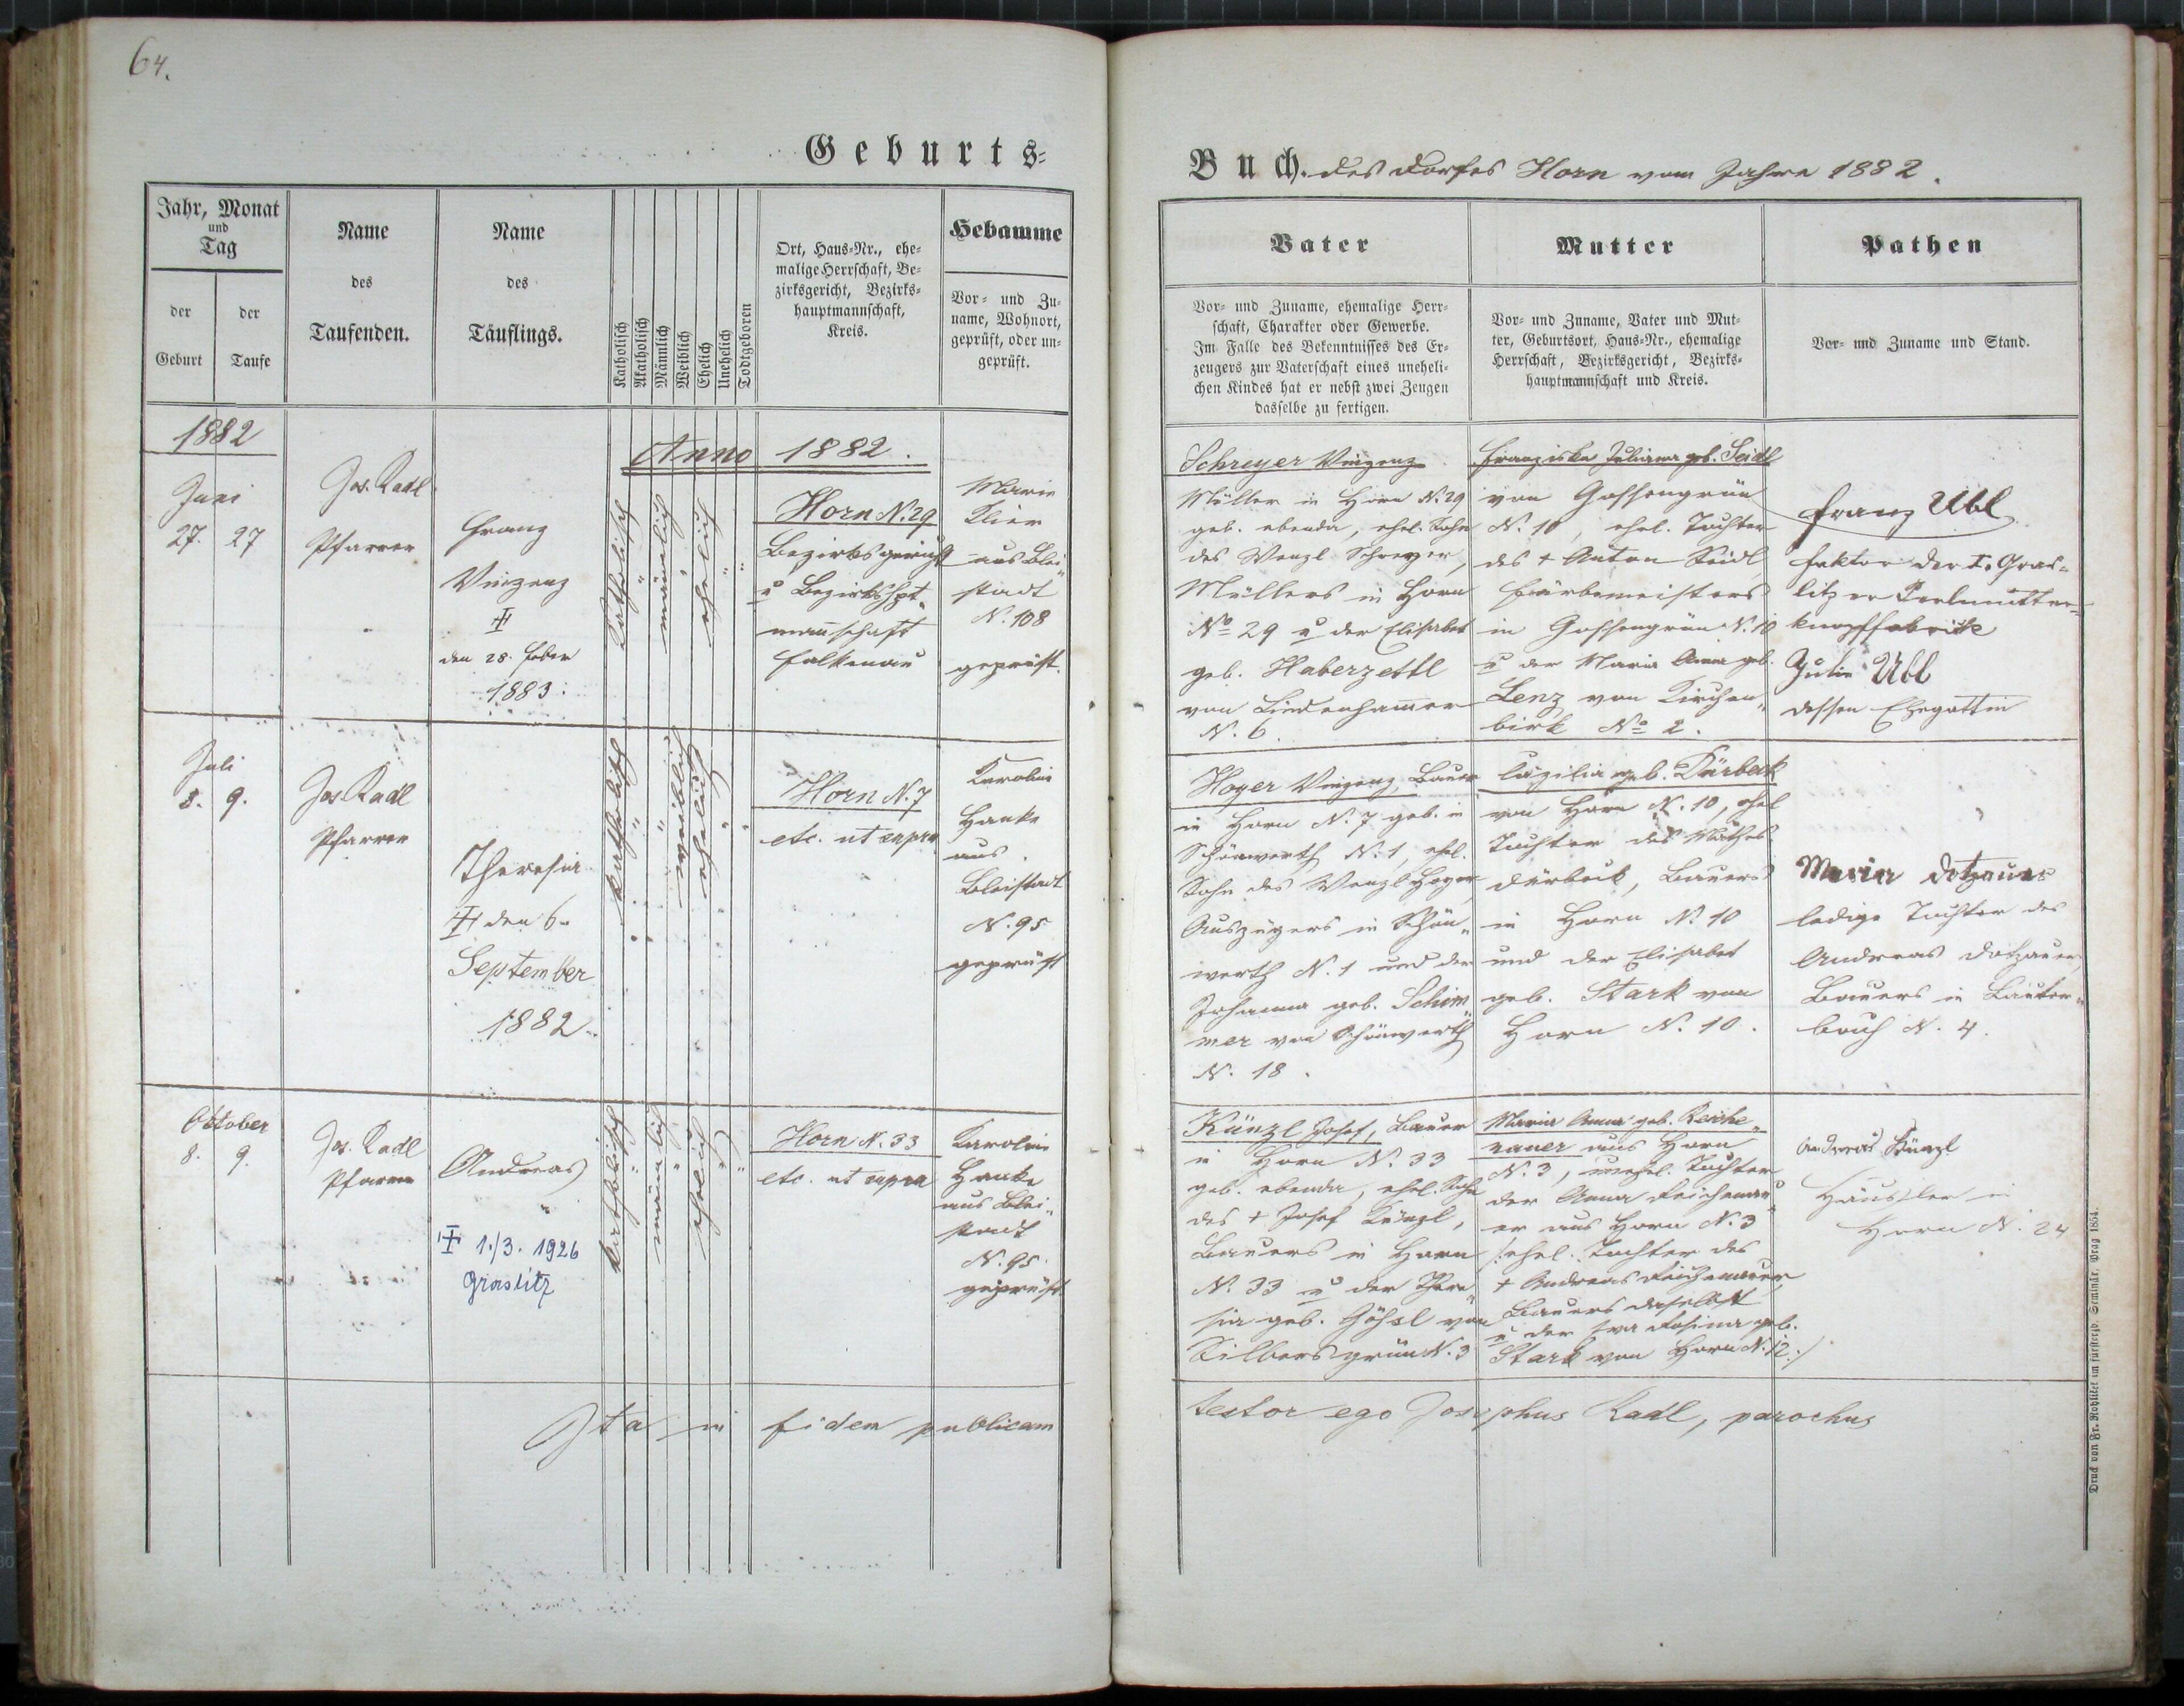 64.
Geburts-
Buch. des Dorfes Horn vom Jahre 1882.
Jahr, Monat
und
Tag
der
Geburt
der
Taufe
Name
des
Taufenden.
Name
des
Täuflings.
Katholisch
Akatholisch
Männlich
Weiblich
Ehelich
Unehelich
Todtgeboren
Ort, Haus-Nr., ehe-
malige Herrschaft, Be-
zirksgericht, Bezirks-
hauptmannschaft,
Kreis.
Hebamme
Vor- und Zu-
name, Wohnort,
geprüft, oder un-
geprüft.
Vater
Vor- und Zuname, ehemalige Herr-
schaft, Charakter oder Gewerbe.
Im Falle des Bekenntnisses des Er-
zeugers zur Vaterschaft eines uneheli-
chen Kindes hat er nebst zwei Zeugen
dasselbe zu fertigen.
Mutter
Vor- und Zuname, Vater und Mut-
ter, Geburtsort, Haus-Nr., ehemalige
Herrschaft, Bezirksgericht, Bezirks-
hauptmannschaft und Kreis.
Pathen
Vor- und Zuname und Stand.
1882
Anno 1882.
Juni
27. 27
Jos. Radl
Pfarrer
Franz
Vinzenz
den 28. Feber
1883.
katholisch
männlich
ehelich
Horn N. 29
Bezirksgericht
u Bezirkshpt
mannschaft
Falkenau
Marie
Klier
aus Blei
stadt
N. 108
geprüft.
Schreyer Vinzenz
Müller in Horn N. 29
geb. ebenda, ehel. Sohn
des Wenzl Schreyer,
Müllers in Horn
No 29 u der Elisabet
geb. Haberzettl
von Lindenhamer
N. 6.
Franziska Juliana geb. Seidl
von Gossengrün
N. 10, ehel. Tochter
des + Anton Seidl
Färbermeisters
in Gossengrün N. 10
u der Maria Anna geb.
Lenz von Kirchen„
birk No 2.
Franz Übl
Faktor der I. Gras-
litzer Perlmutter-
knopffabrik
Julie Übl
dessen Ehegattin
Juli
8. 9.
Jos Radl
Pfarrer
Theresia
den 6.
September
1882.
katholisch
weiblich
ehelich
Horn N. 7
etc. ut supra
Karolin
Hanke
aus
Bleistadt
N. 95
geprüft
Hoyer Vinzenz, Bauer
in Horn N. 7 geb. in
Schönwerth N. 1, ehel.
Sohn des Wenzl Hoyer
Auszügers in Schön„
werth N. 1 und der
Johanna geb. Schim„
mer von Schönwerth
N. 18.
Cäzilia geb. Dürbeck
von Horn N. 10, ehel
Tochter des Mathes
Dürbeck, Bauers
in Horn N. 10
und der Elisabet
geb. Stark von
Horn N. 10.
Maria Dotzauer
ledige Tochter des
Andreas Dotzauer,
Bauers in Lauter„
bach N. 4.
Oktober
8. 9.
Jos. Radl
Pfarrer
Andreas
1./3. 1926
Graslitz
katholisch
männlich
ehelich
Horn N. 33
etc. ut supra
Karolin
Hanke
aus Blei„
stadt
N. 95
geprüft
Künzl Josef, Bauer
in Horn N. 33
geb. ebenda, ehel. Sohn
des + Josef Künzl,
Bauers in Horn
N. 33 u der There„
sia geb. Gößl von
Silbersgrün N. 3
Maria Anna geb. Reiche„
nauer aus Horn
N. 3, unehel. Tochter
der Anna Reichenau„
er aus Horn N. 3
/:ehel. Tochter des
+ Andreas Reichenauer,
Bauers daselbst
u der Eva Rosina geb.
Stark von Horn N. 12:/
Andreas Künzl
Häusler in
Horn N. 24
Ita in fidem publicam
testor ego Josephus Radl, parochus
Druck von Fr. Rohliček im fürsterzb. Seminär. Prag 1864.